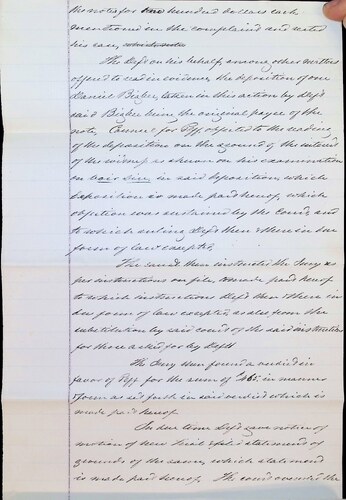 the notes for two hundred dollars each
mentioned in the complaint and rested
his case,
The Deft on his behalf, among other matters
offered to read in evidence the deposition of one
Daniel Bigler, taken in this action by Deft
said Bigler being the original payee of the
note, Counsel for Plff objected to the reading
of the deposition on the ground of the interest
of the witness as shown on his examination
on voir dire in said deposition, which
deposition is made part hereof, which
objection was sustained by the Court, and
to which ruling Deft then & there in due
form of law excepted,
The Court then instructed the Jury as
per instructions on file, & made part hereof
to which instructions Deft then & there in
due form of law excepted, as also from the
substitution by said court of the said instructions
for those asked for by Deft
The Jury then found a verdict in
favor of Plff for the sum of in manner
& form as set forth in said verdict which is
made part hereof.
In due time Deft gave notice of
motion of New Trial & filed statement of
grounds of the same, which statement
is made part hereof. The court overruled the